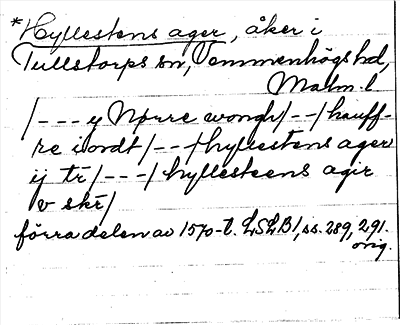 *Hyllestens ager, åker i
Tullstorps sn, Vemmenhögs hd,
Malm. l
/--- y Nørre wongh/--/hauff-
re i ordt/--/hyllestens ager
ij tr/---/hyllesteens agir
v skr/
förra delen av 1570-t. LSLB1, ss. 289, 291.
orig.